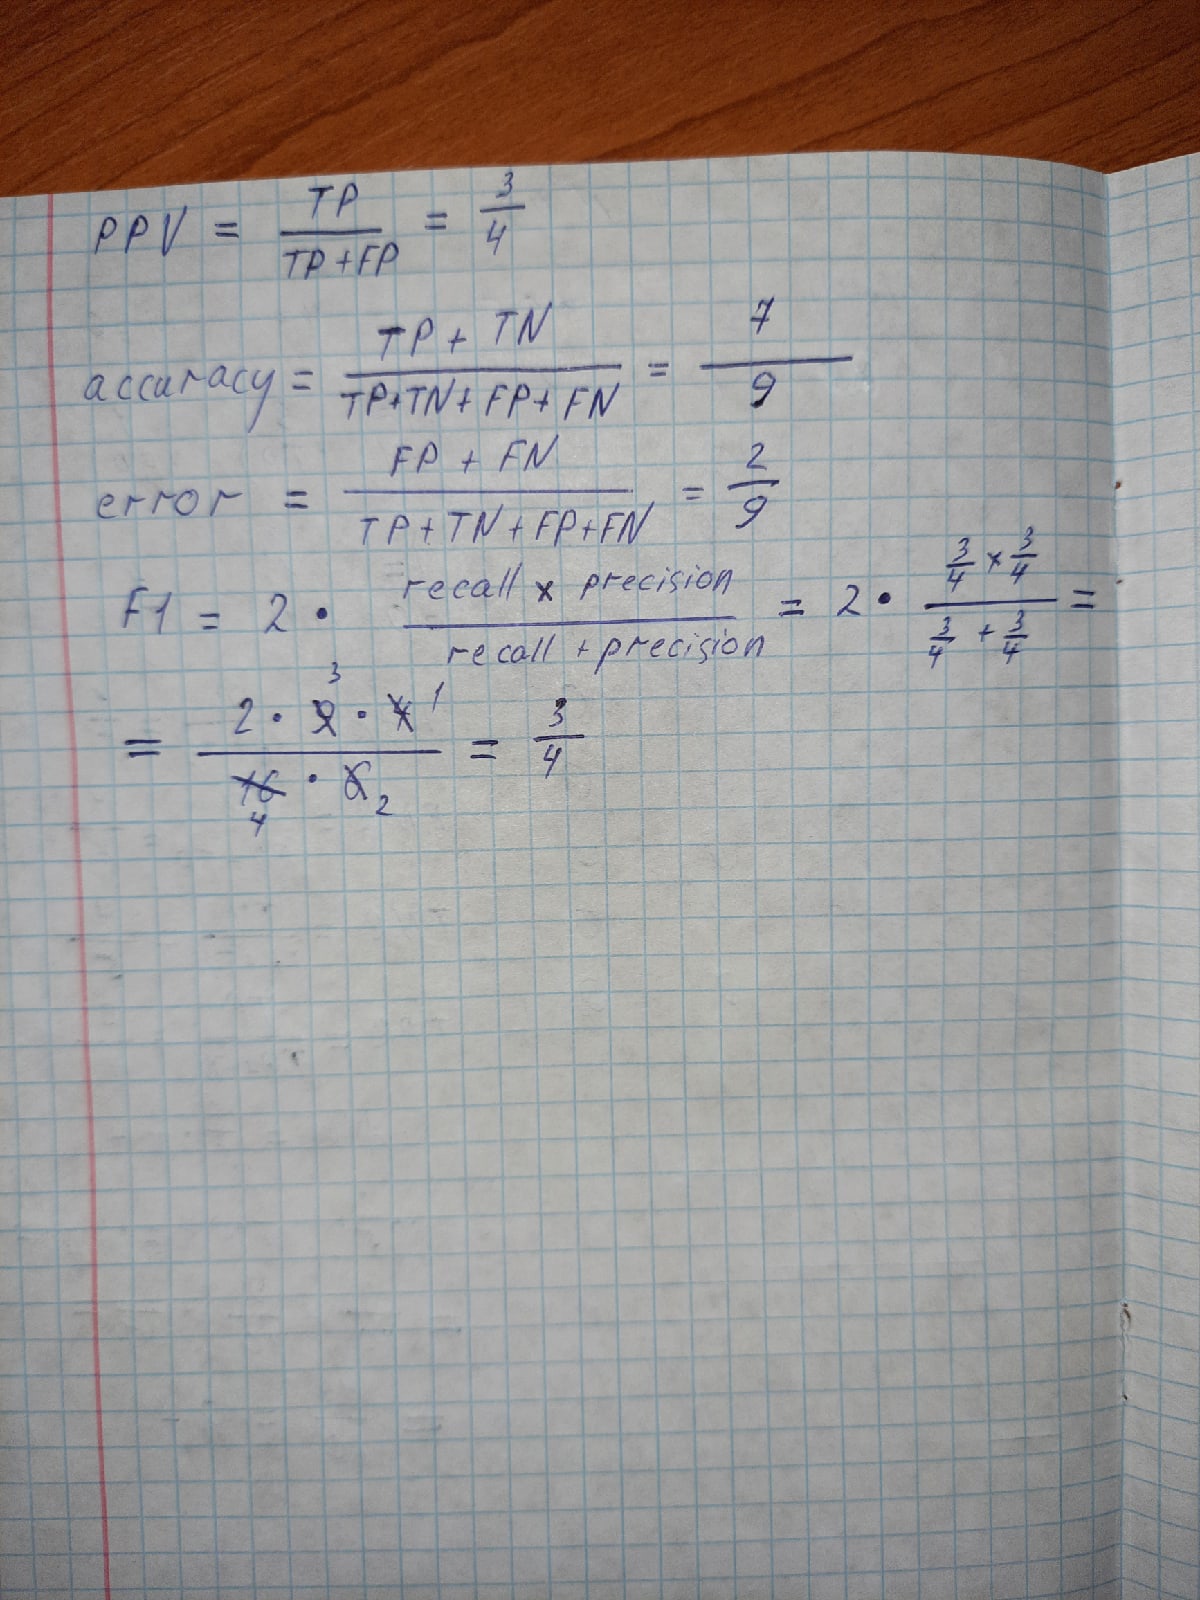 PPV = TP / TP+FP = 3/4
accuracy = TP + TN / TP+TN+FP+FN = 7/9
error = FP + FN / TP+TN+FP+FN = 2/9
F1 = 2 · recall x precision / recall + precision = 2 · 3/4 x 3/4 / 3/4 + 3/4 =
= 2 · 9 3 · 4 1 / 16 4 · 6 2 = 3/4